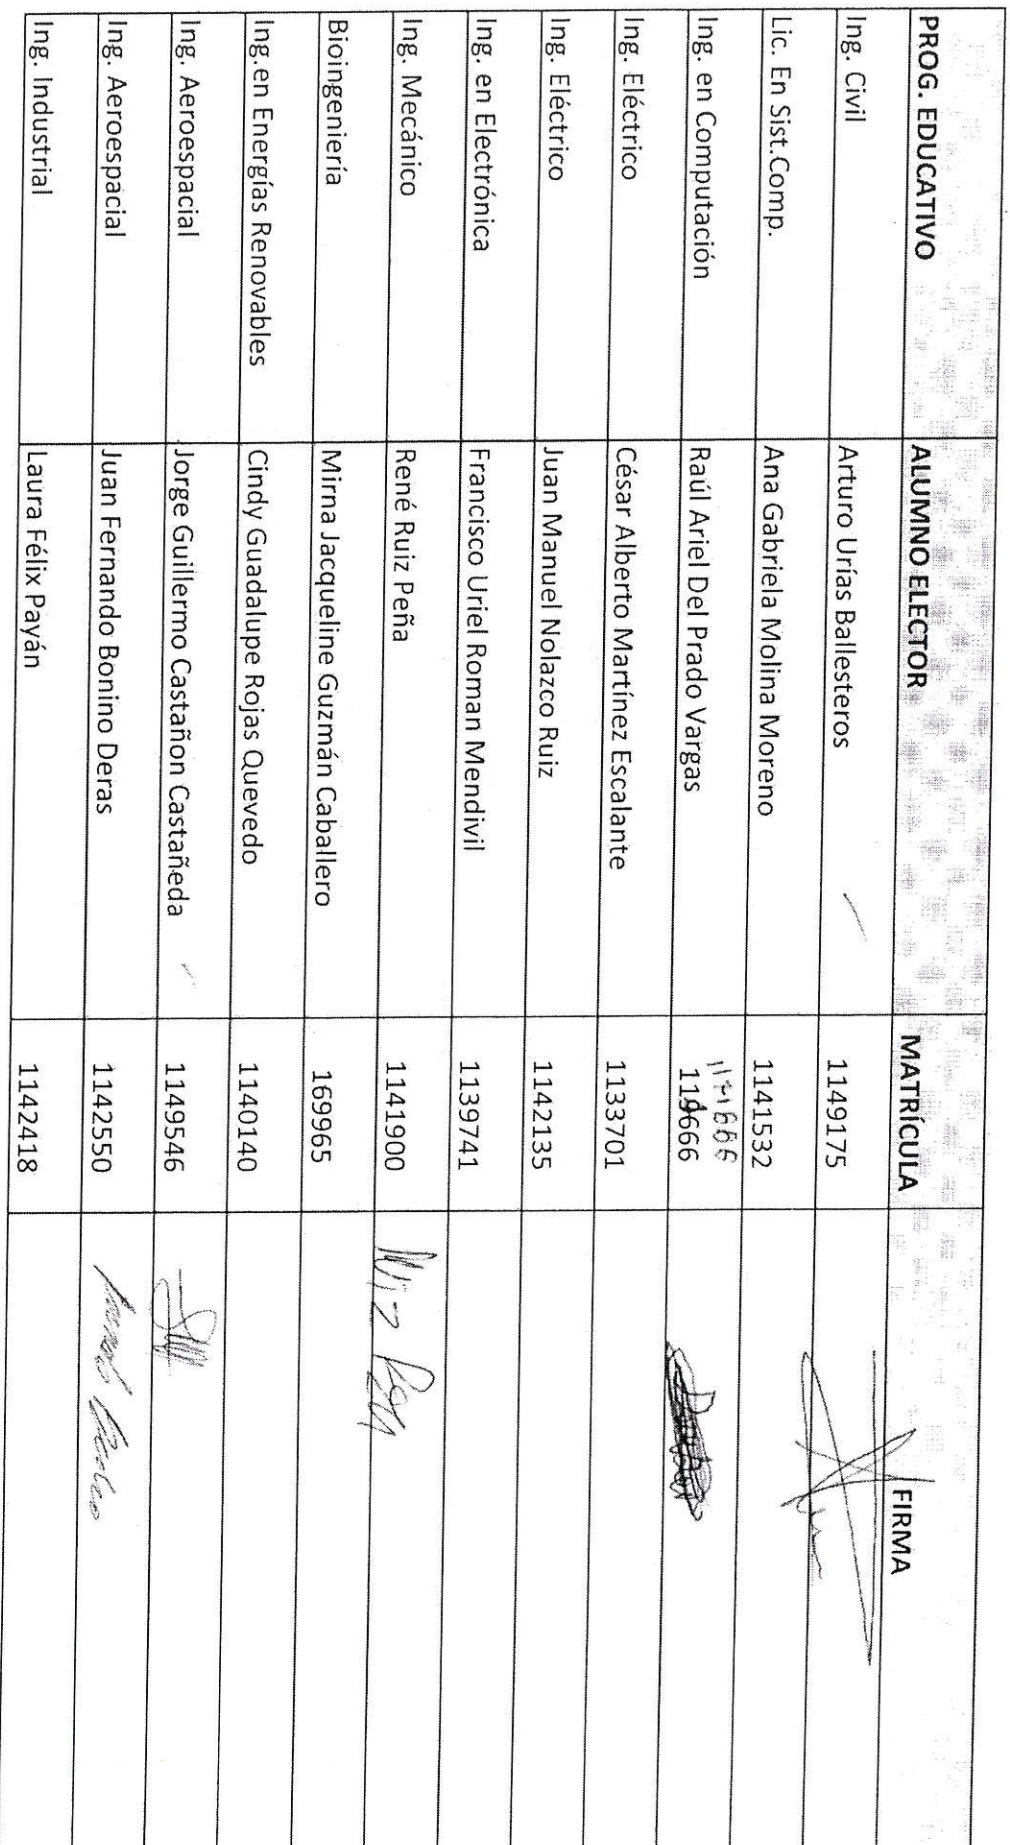 PROG. EDUCATIVO ALUMNO ELECTOR MATRÍCULA FIRMA
Ing. Civil Arturo Urías Ballesteros 1149175
Lic. En Sist.Comp. Ana Gabriela Molina Moreno 1141532
Ing. en Computación Raúl Ariel Del Prado Vargas
Ing. Eléctrico César Alberto Martínez Escalante 1133701
Ing. Eléctrico Juan Manuel Nolazco Ruiz 1142135
Ing. en Electrónica Francisco Uriel Roman Mendivil 1139741
Ing. Mecánico René Ruiz Peña 1141900
Bioingeniería Mirna Jacqueline Guzmán Caballero 169965
Ing.en Energías Renovables Cindy Guadalupe Rojas Quevedo 1140140
Ing. Aeroespacial Jorge Guillermo Castañon Castañeda 1149546
Ing. Aeroespacial Juan Fernando Bonino Deras 1142550
Ing. Industrial Laura Félix Payán 1142418